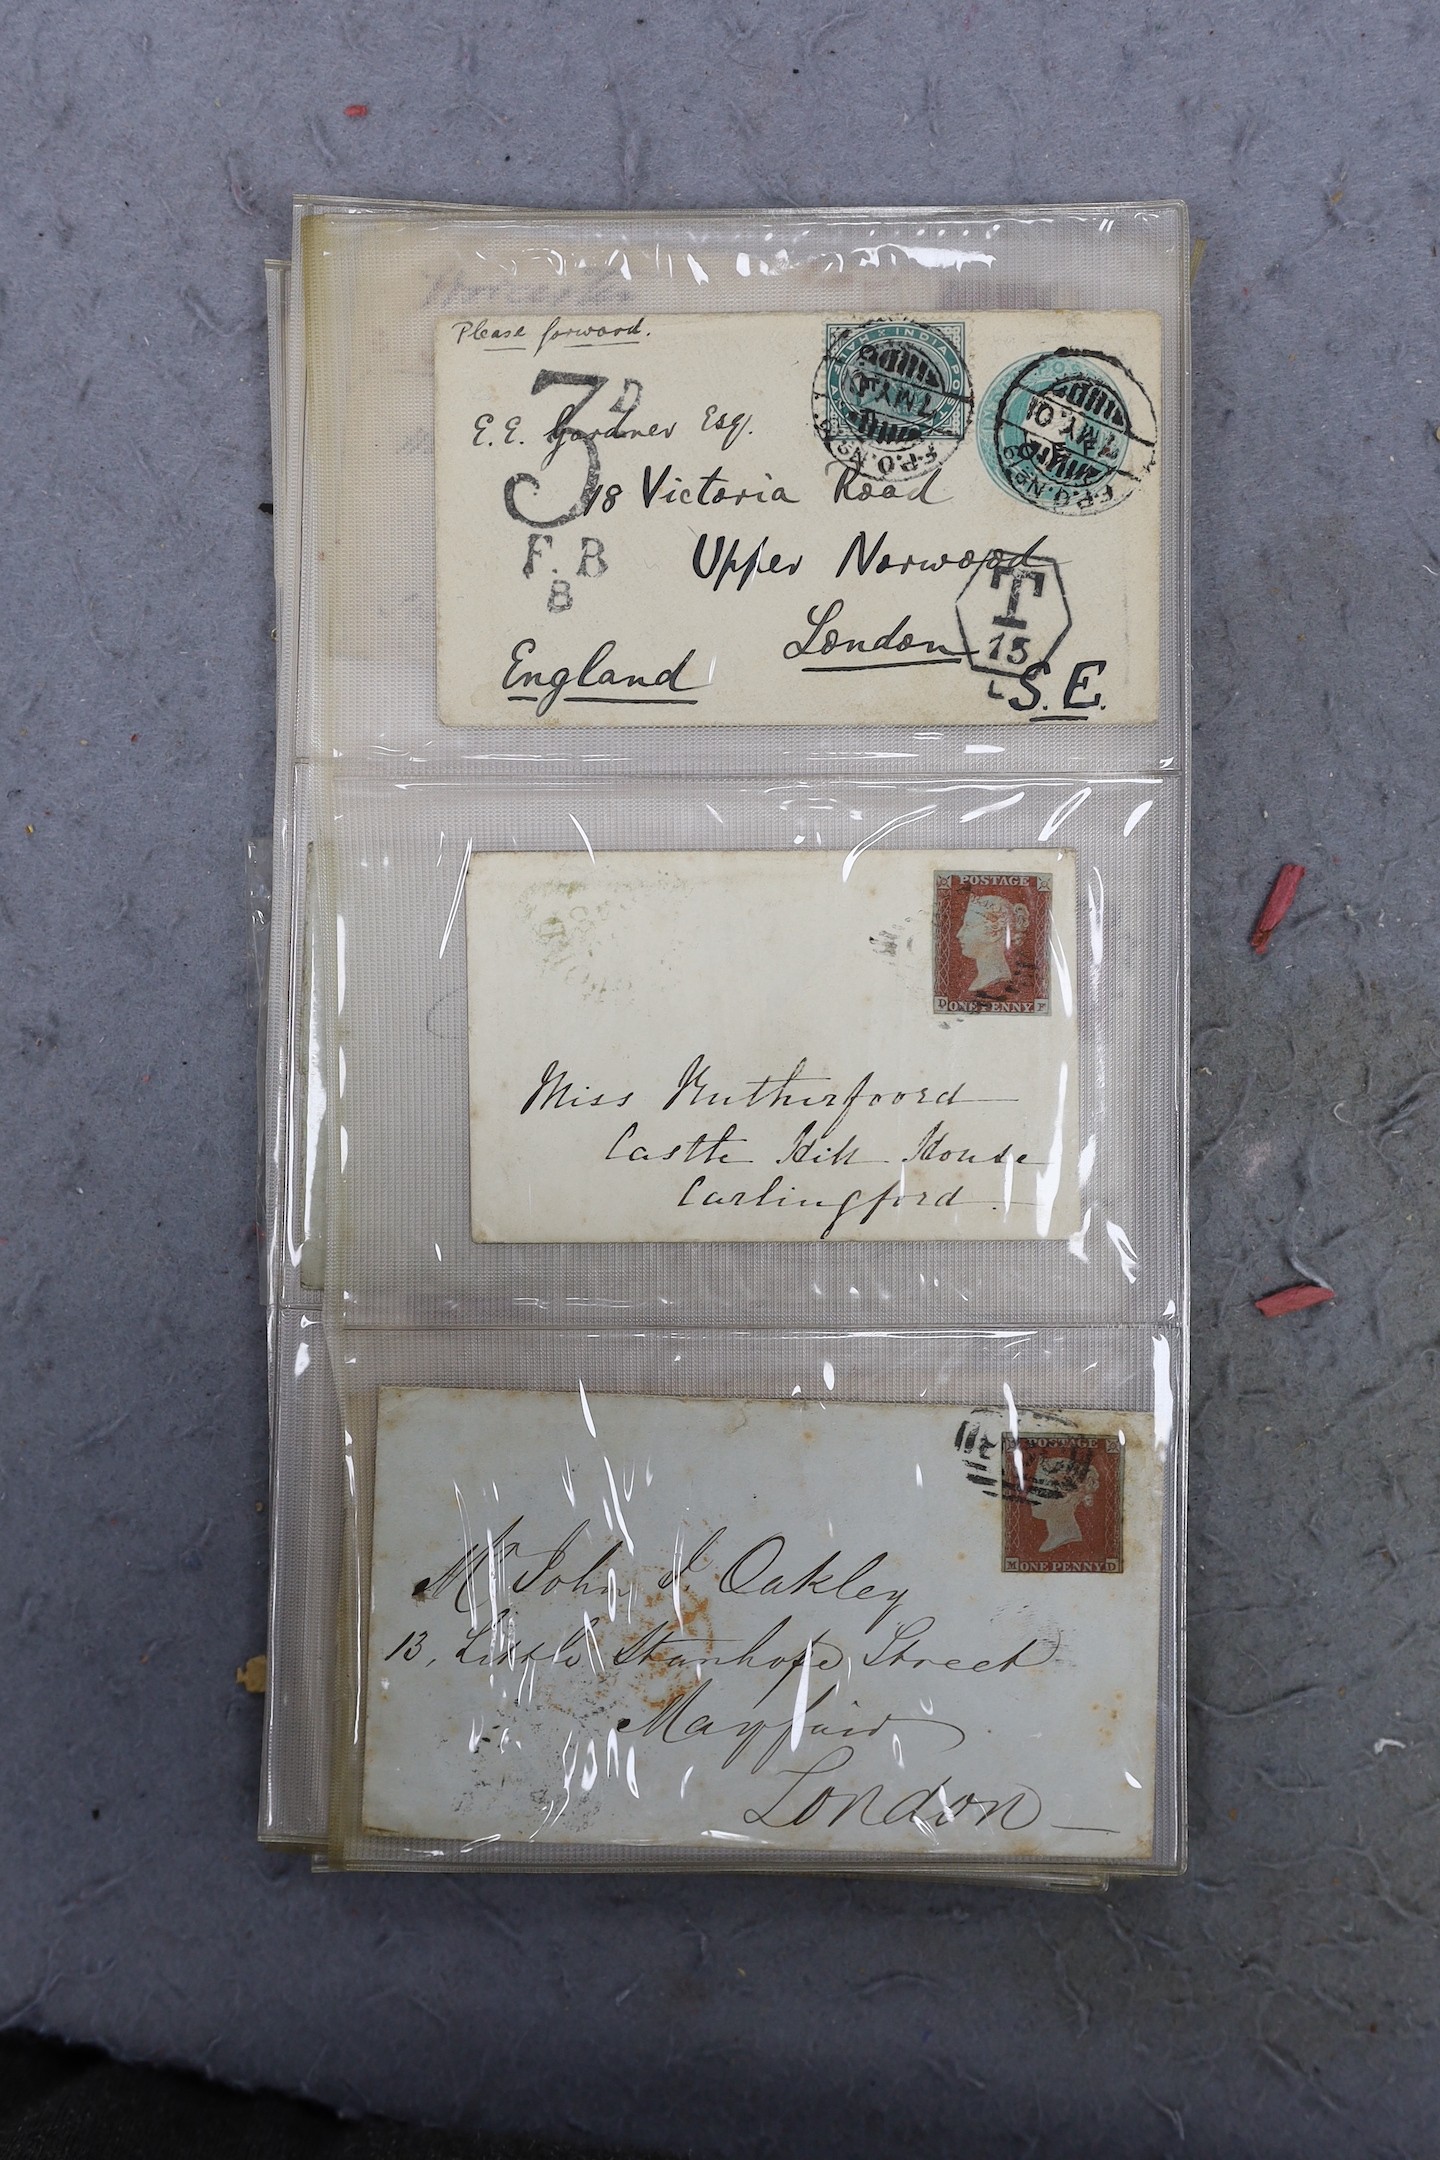 Worcester
Please forward.
INDIA POSTAGE
HALF ANNA
3D
F.P.O. No
7 MY. 01
F.P.O. No
7 MY. 01
E. E. Gardner Esq.
18 Victoria Road
F. B
Upper Norwood
8
T
15
London
England
S. E.
POSTAGE
D ONE PENNY F
Miss Rutherfoord
Castle Hill House
Carlingford
POSTAGE
M ONE PENNY D
Mr John J. Oakley
13, Little Stanhope Street
Mayfair
London